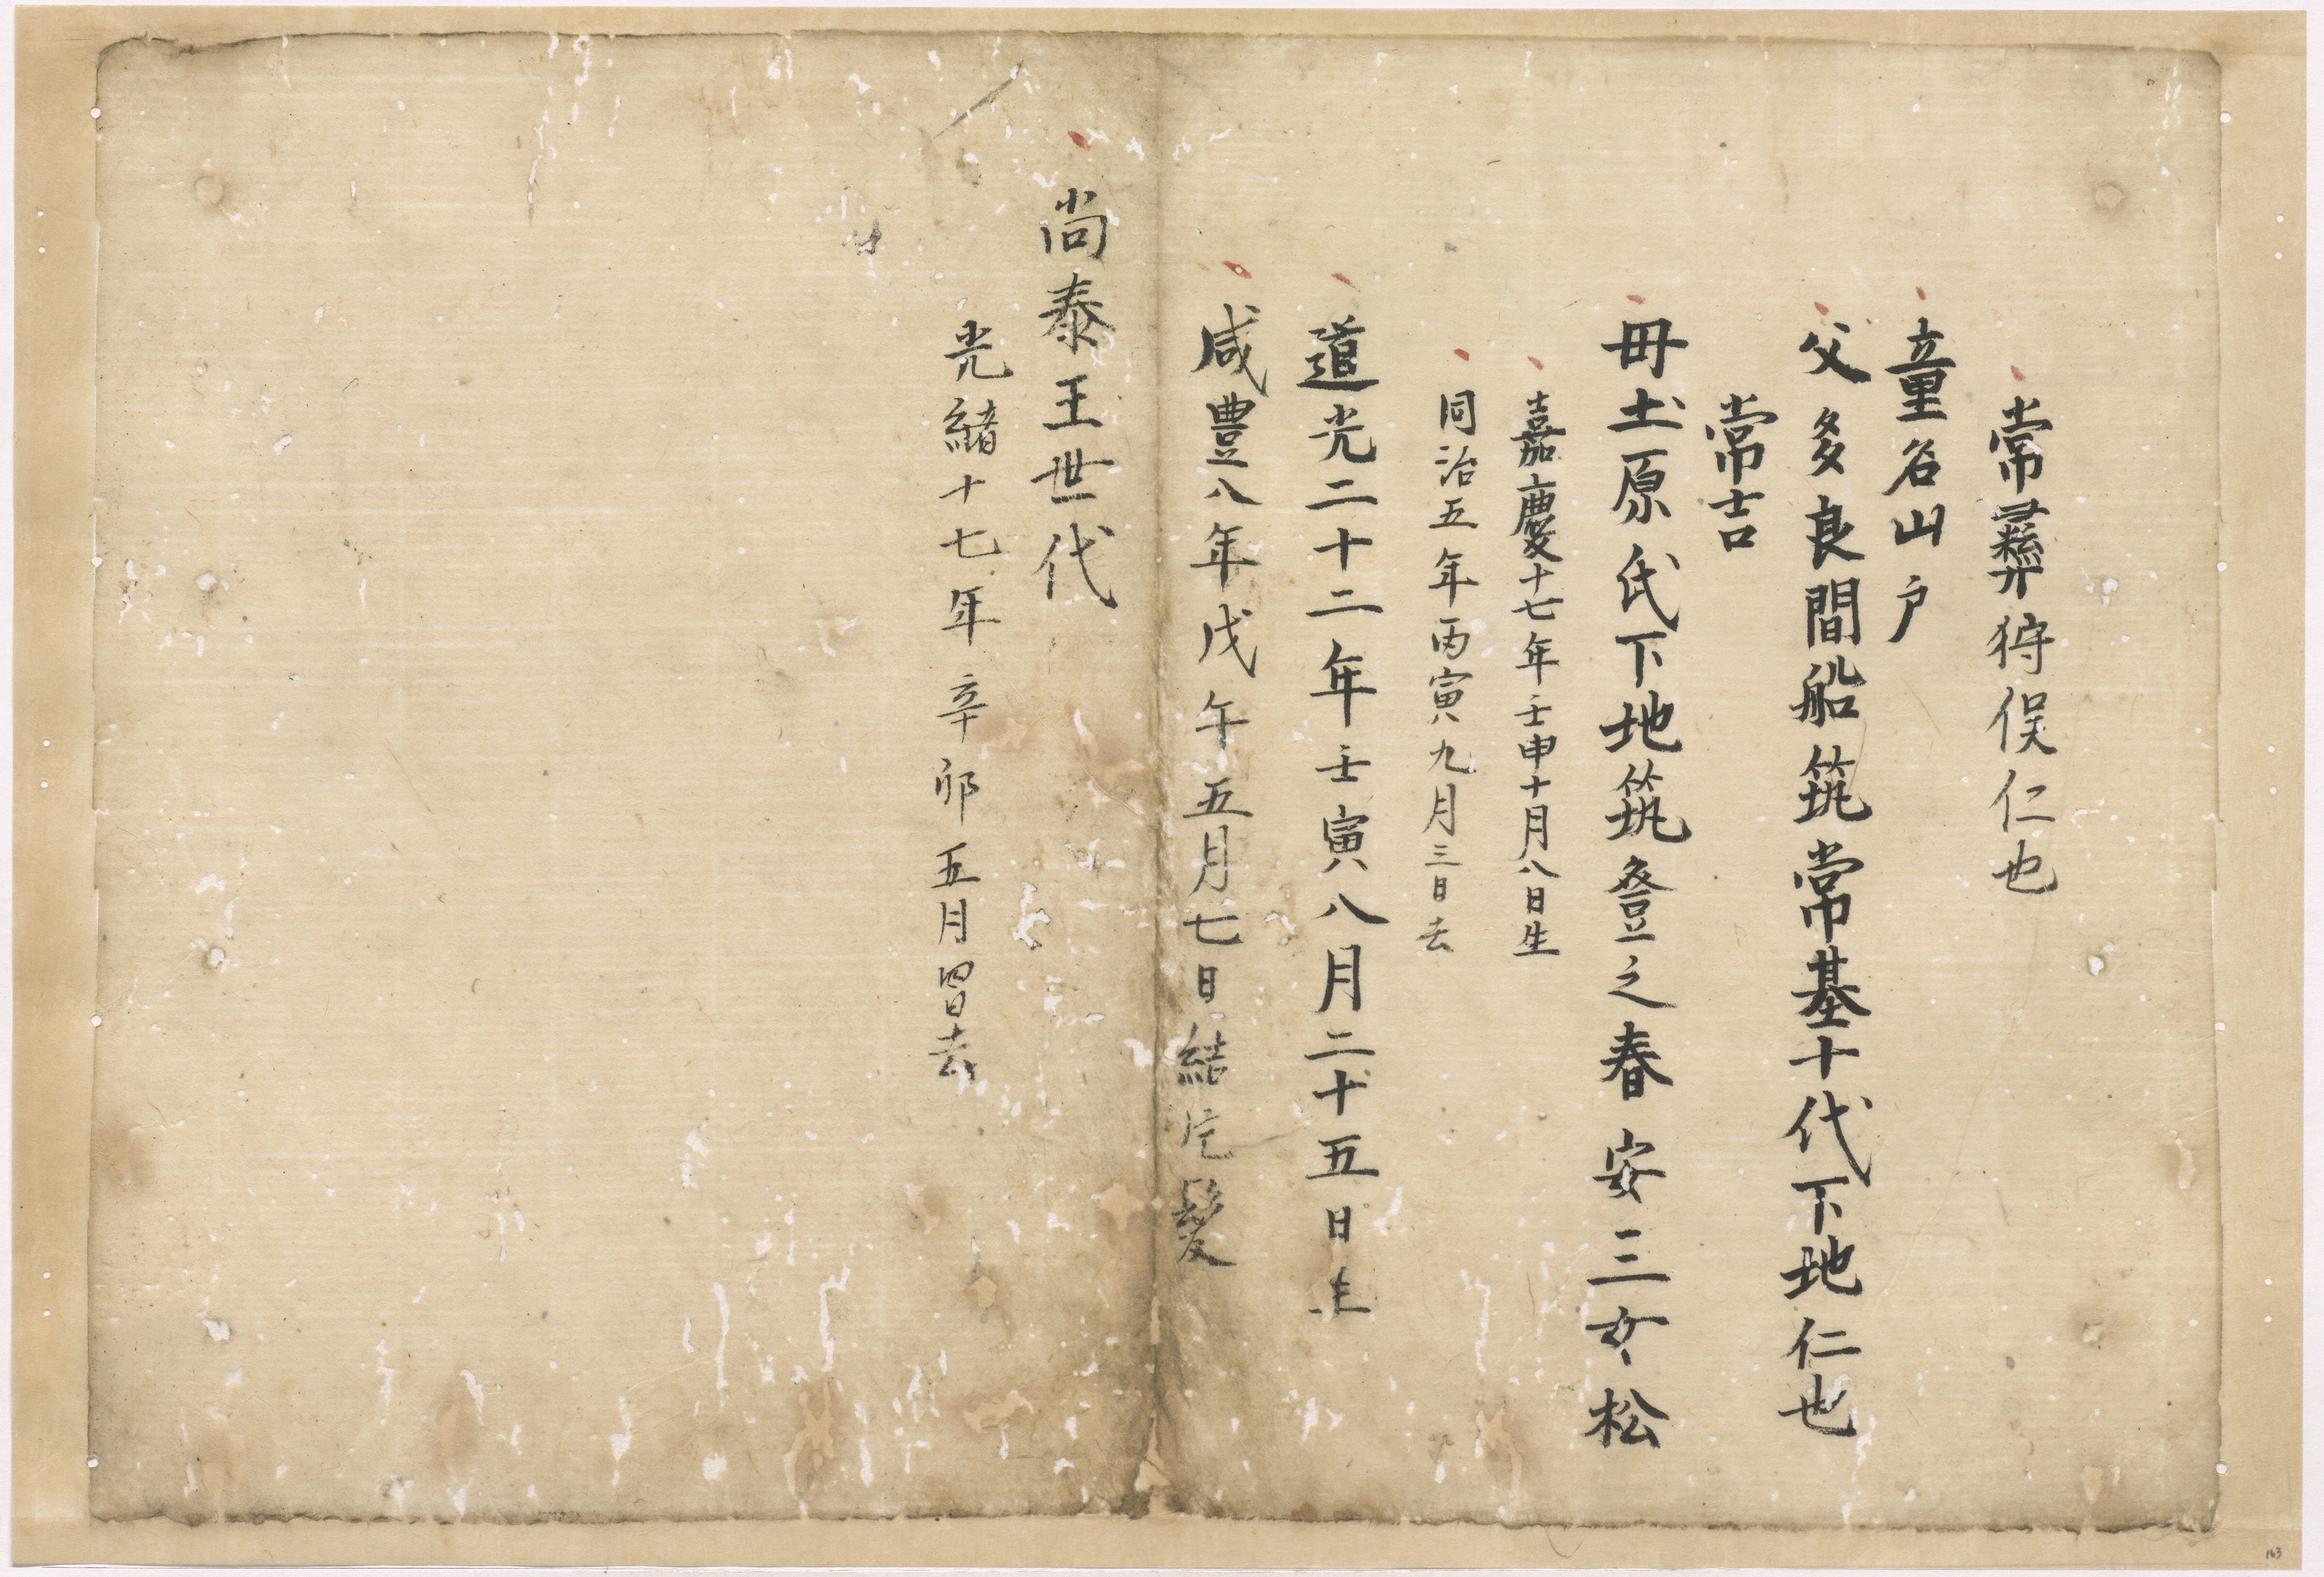 常彛狩俣仁也
童名山戸
父多良間船筑常基十代下地仁也
常吉
毋土原氏下地筑登之春安三女松
嘉慶十七年壬申十月八日生
同治五年丙寅九月三日去
道光二十二年壬寅八月二十五日生
咸豊八年戊午五月七日結片髪
尚泰王世代
光緒十七年辛卯五月四日去
163